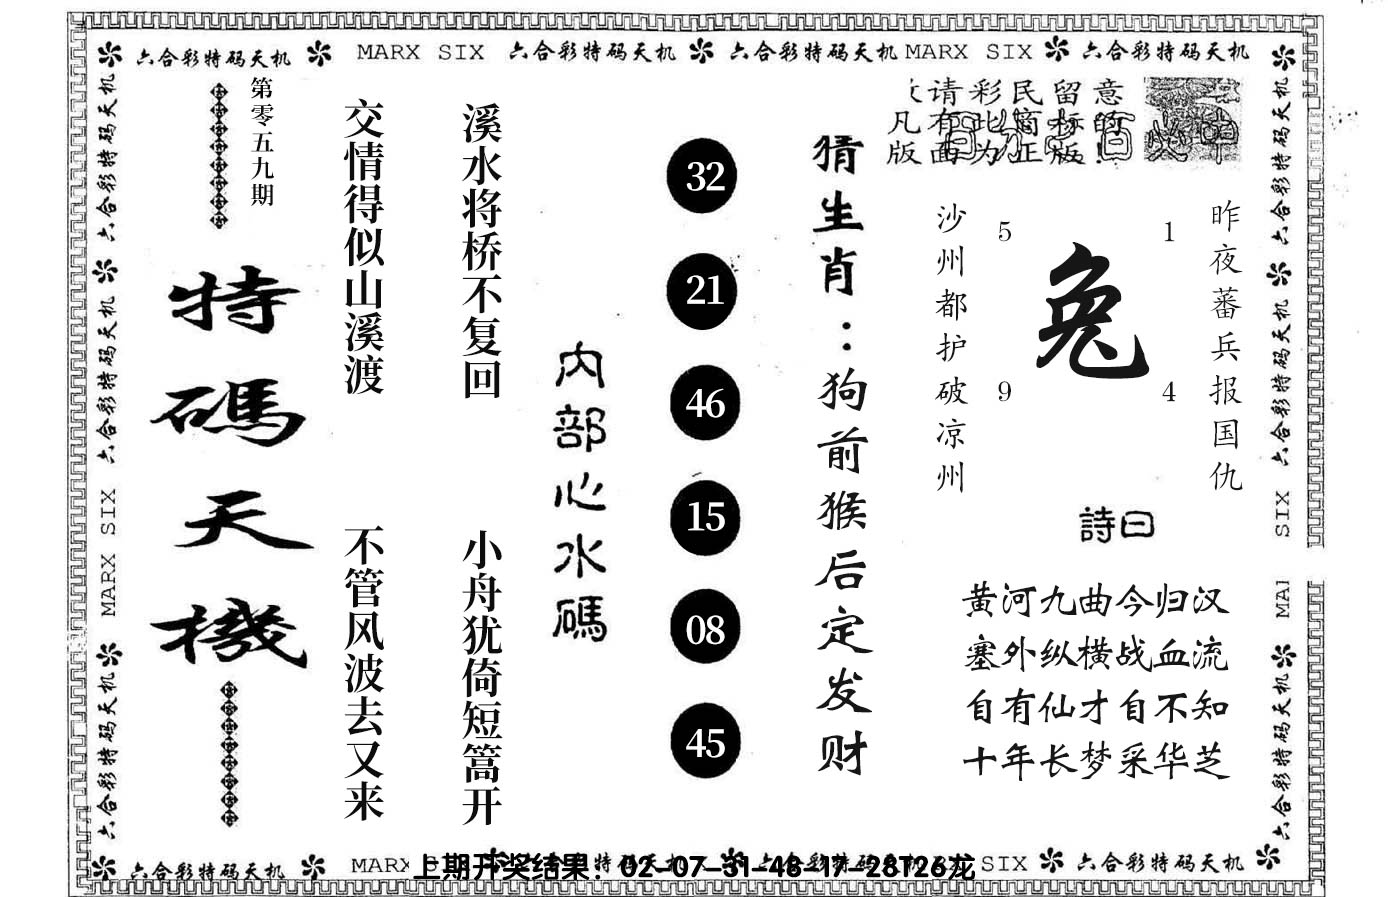 六合彩特码天机 MARX SIX 六合彩特码天机 六合彩特码天机 MARX SIX 六合彩特码天机
六合彩特码天机
六合彩特码天机
MARX SIX
六合彩特码天机
第零五九期
特碼天機
交情得似山溪渡
不管风波去又来
溪水将桥不复回
小舟犹倚短篙开
内部心水碼
32
21
46
15
08
45
猜生肖：狗前猴后定发财
请彩民留意
凡有此商标的
版面为正版!
沙州都护破凉州
5
9
兔
1
4
昨夜蕃兵报国仇
詩曰
黄河九曲今归汉
塞外纵横战血流
自有仙才自不知
十年长梦采华芝
六合彩特码天机
六合彩特码天机
SIX
六合彩特码天机
六合彩特码天机 MARX
上期开奖结果：02-07-31-48-17-28T26龙
SIX 六合彩特码天机